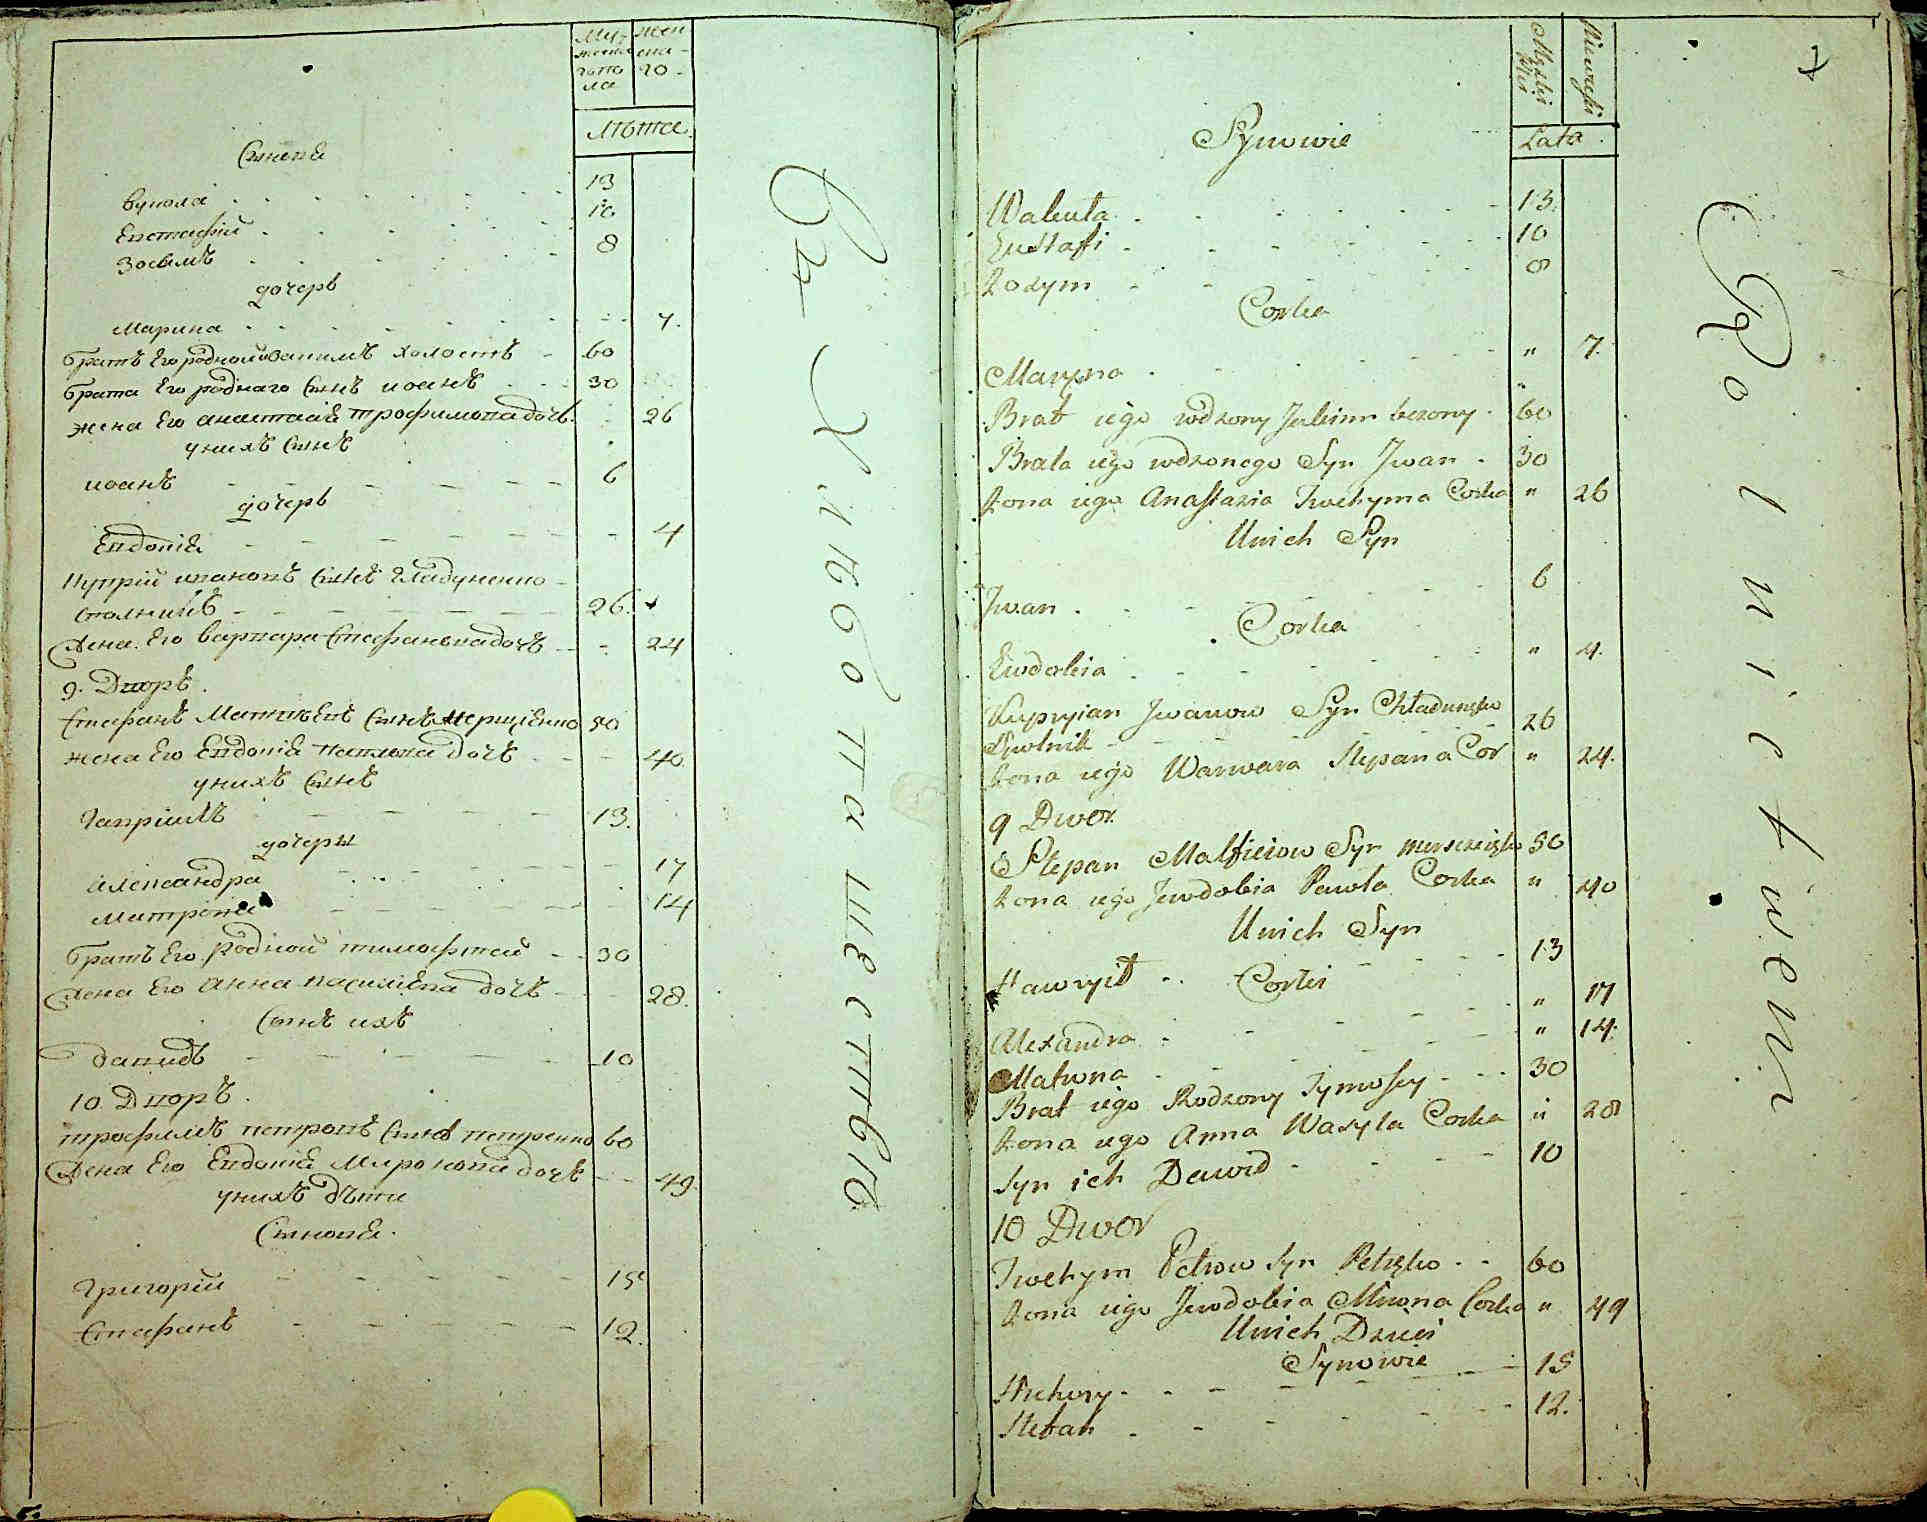 Му- жен
жеска ска-
го по го-
ла
лѣта
Сынова
Вукола 13
Евстафій 10
Зосимъ 8
дочерь
Марина 7.
братъ Его родной Іоакимъ холостъ 60
брата Его роднаго Сынъ иоанъ 30
жена Его анастасіа трофимова дочь 26
у нихъ Сынъ
иоанъ 6
дочерь
Евдокіа 4
Купрій ивановъ Сынъ Гладуненко
столникъ 26.
Жена Его варвара Стефанова дочь 24
9. Дворъ.
Стефанъ Матвѣевъ Сынъ 50
жена Его Евдокіа Павлова дочь 40
у нихъ Сынъ
Гавріилъ 13.
дочеры
Александра 17
Матрона 14
братъ Его Родной тимофтей 30
Жена Его Анна василіева дочь 28.
Сынъ ихъ
Давидъ 10
10. Дворъ.
трофимъ петровъ Сынъ петренко 60
Жена Его Евдокіа Миронова дочь 49.
у нихъ дѣти
Сынова.
Григорій 15
Стефанъ 12.
Съ Хлѣбопашествъ
Męzkiey Płci Niewieściey
Lata
Synowie
Wakuła 13.
Eustafi 10
Zosym 8
Corka
Maryna " 7.
Brat iego rodzony Jakim bezżony 60
Brata iego rodzonego Syn Jwan 30
Żona iego Anastazia Trochyma Corka " 26
Unich Syn
Jwan 6
Corka
Ewdokia " 4.
Kupryian Jwanow Syn Chładunęko
26
Żona iego Warwara Stepana Cor " 24.
9 Dwor
Stepan Matfieiow Syn 50
Żona iego Jewdokia Pawła Corka " 40
Unich Syn
Hawryił 13
Corki
Alexandra " 17
Matrona " 14.
Brat iego Rodzony Tymofey 30
Żona iego Anna Wasyla Corka " 28
Syn ich Dawid 10
10 Dwor
Trochym Petrow Syn Petręko 60
Żona iego Jewdokia Mirona Corka " 49
Unich Dzieci
Synowie
Hrehory 15
Stefan 12.
Rolnictwem